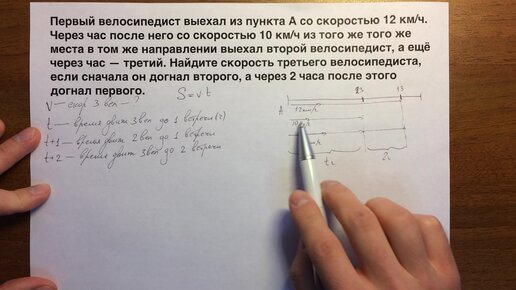 Первый велосипедист выехал из пункта А со скоростью 12 км/ч.
Через час после него со скоростью 10 км/ч из того же того же
места в том же направлении выехал второй велосипедист, а ещё
через час — третий. Найдите скорость третьего велосипедиста,
если сначала он догнал второго, а через 2 часа после этого
догнал первого.
V — скор 3 вел — ?
S = v t
t — время движ 3 вел до 1 встречи (ч)
t+1 — время движ 2 вел до 1 встречи
t+2 — время движ 3 вел до 2 встречи
23
13
A
12км/ч
t₁
2ч